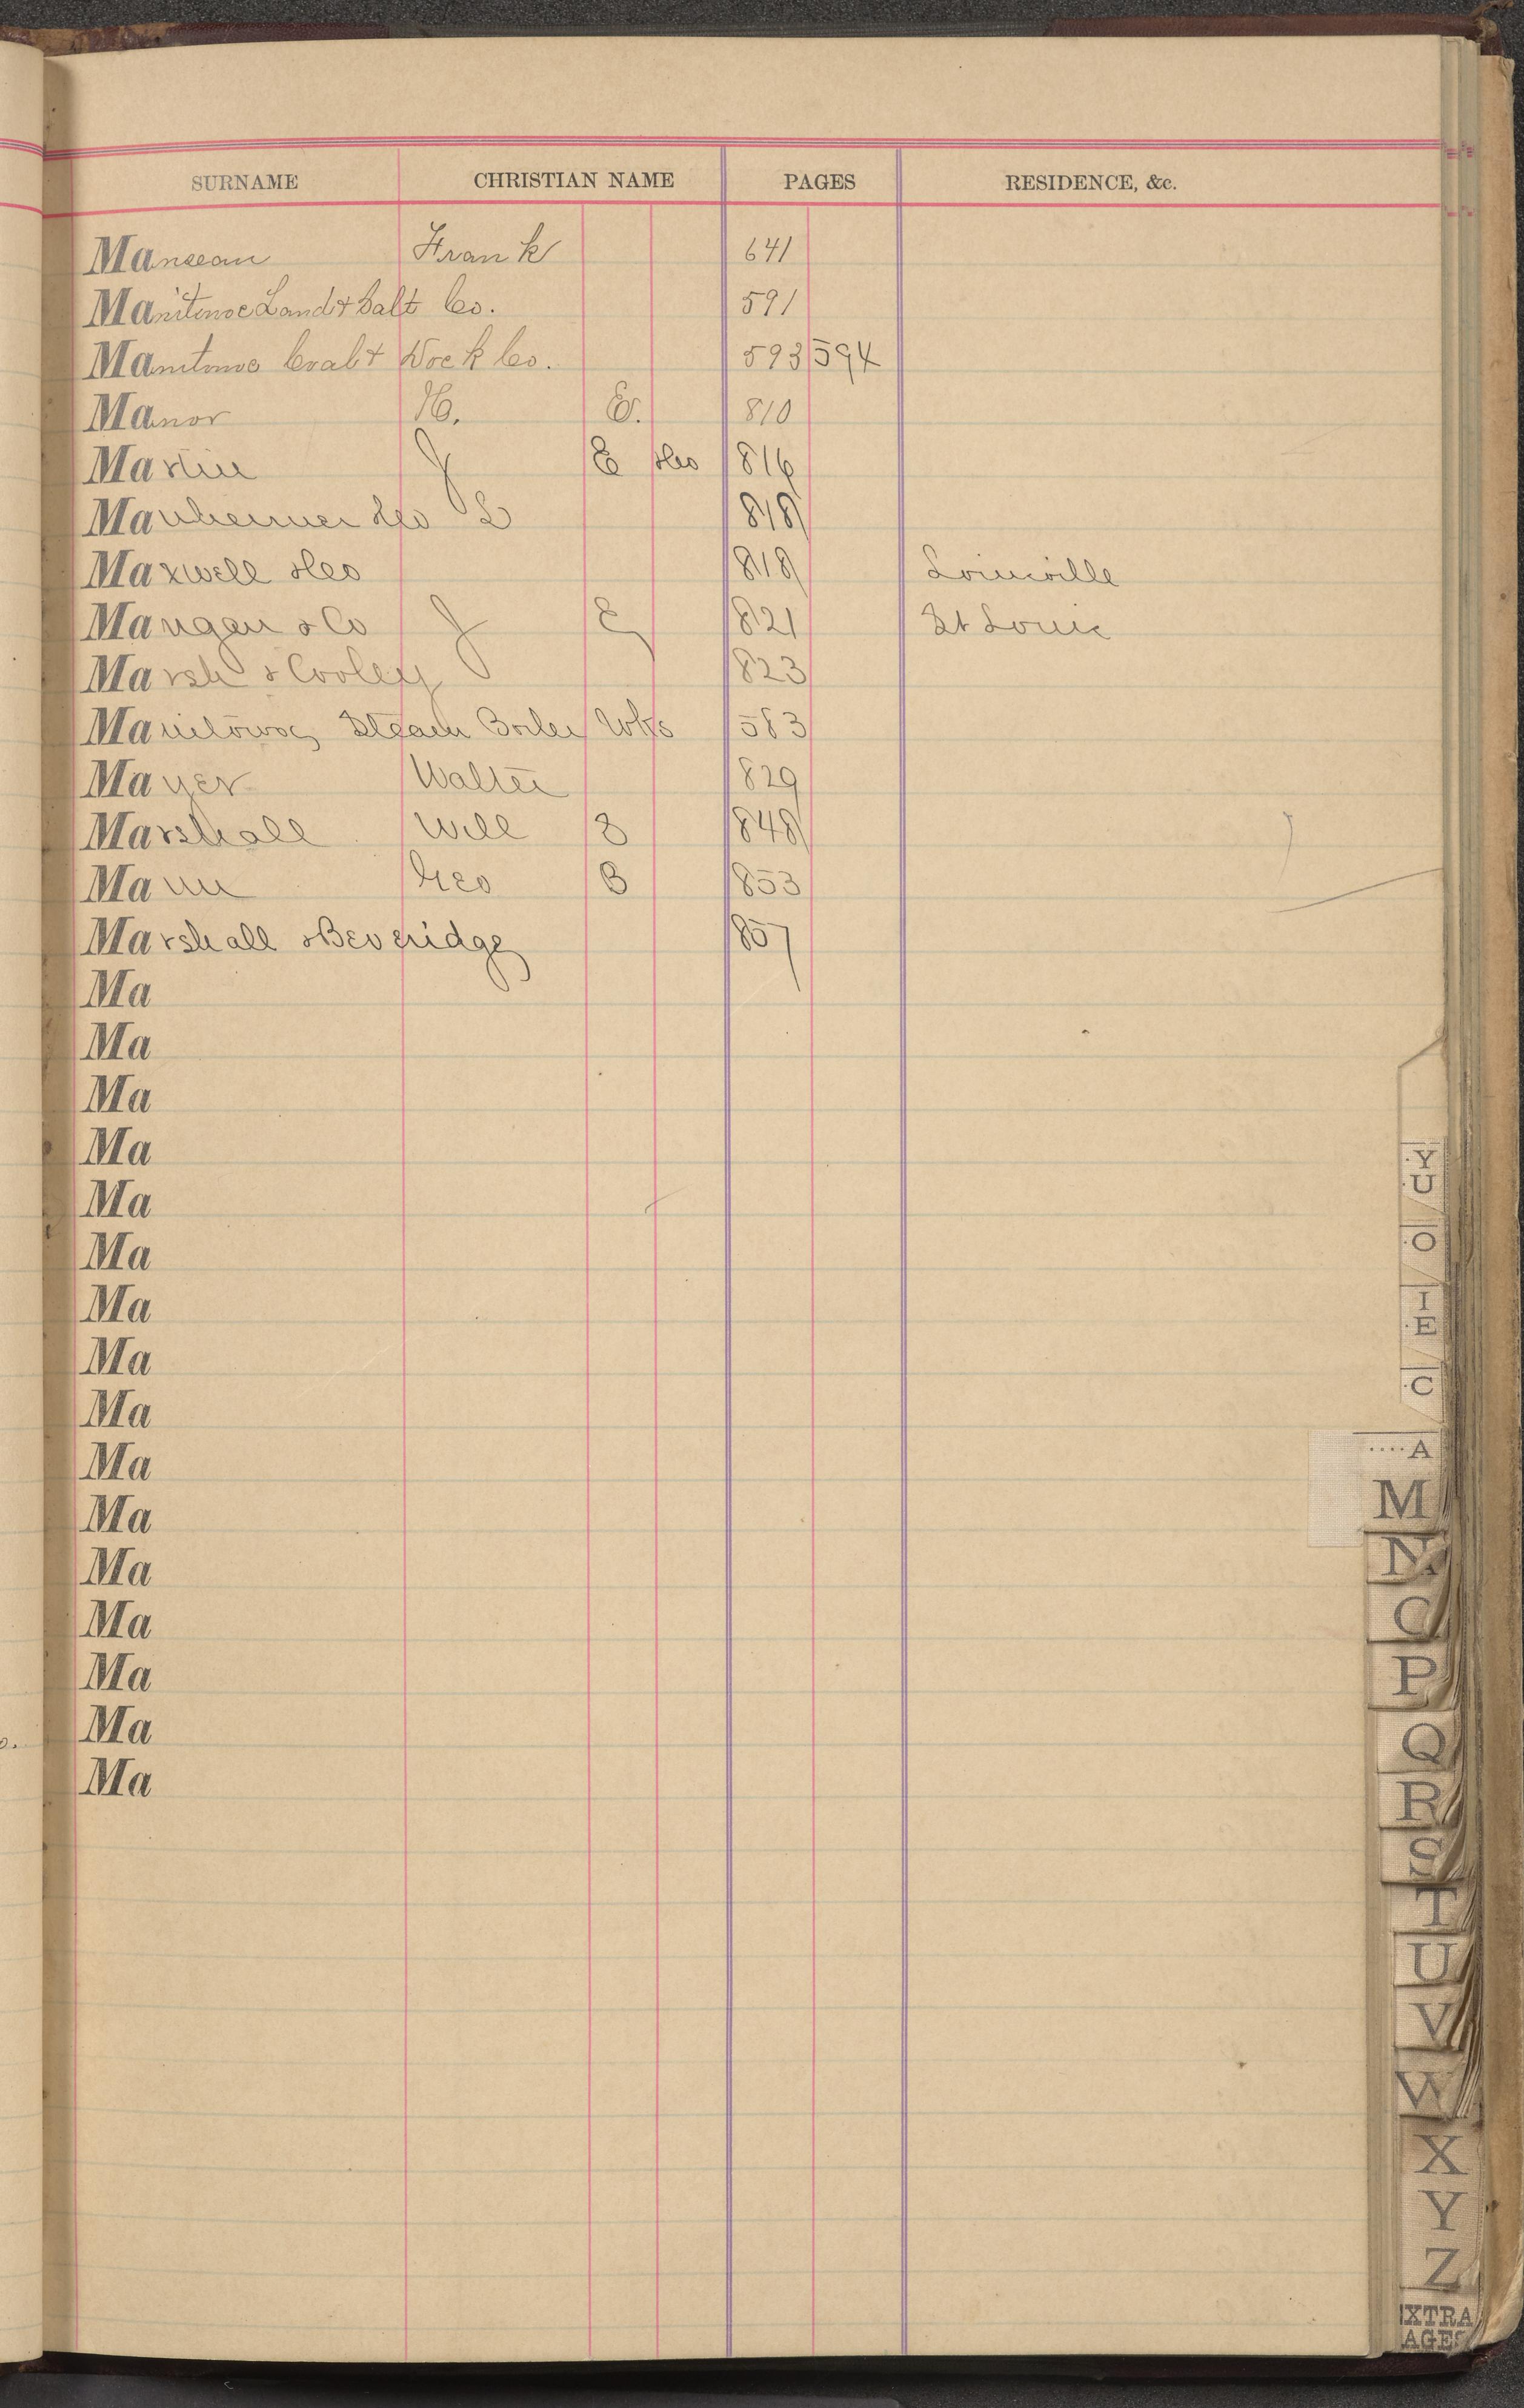 SURNAME CHRISTIAN NAME PAGES RESIDENCE, &c.
Manseau Frank 641
Manitowoc Land & Salt Co. 591
Manitowoc Coal & Dock Co. 593 594
Manor H. E. 810
Martin J E &Co 816
Manheimer &Co L 818
Maxwell &Co 818 Louisville
Mangan & Co J E 821 St Louis
Marsh & Cooley 823
Manitowoc Steam Boiler Wks 583
Mayer Walter 829
Marshall Will 848
Mann Geo B 853
Marshall & Beveridge 857
Ma
Ma
Ma
Ma
Ma
Ma
Ma
Ma
Ma
Ma
Ma
Ma
Ma
Ma
Ma
Ma
Y
U
O
I
E
C
....A
M
N
O
P
Q
R
S
T
U
V
W
X
Y
Z